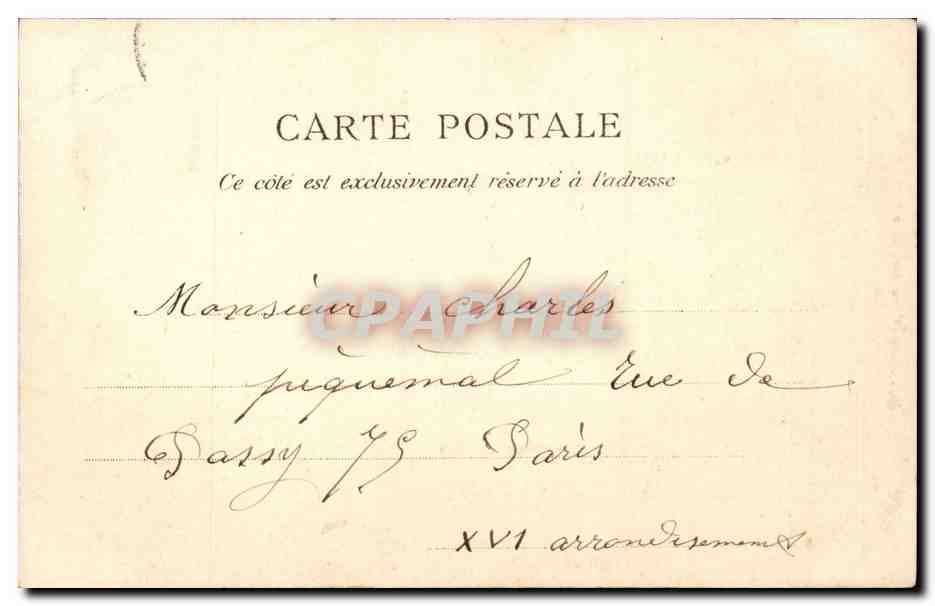 CARTE POSTALE
Ce côté est exclusivement réservé à l'adresse
Monsieur Charles
piquemal rue de
Passy 75 Paris
XVI arrondissement
CPAPHIL